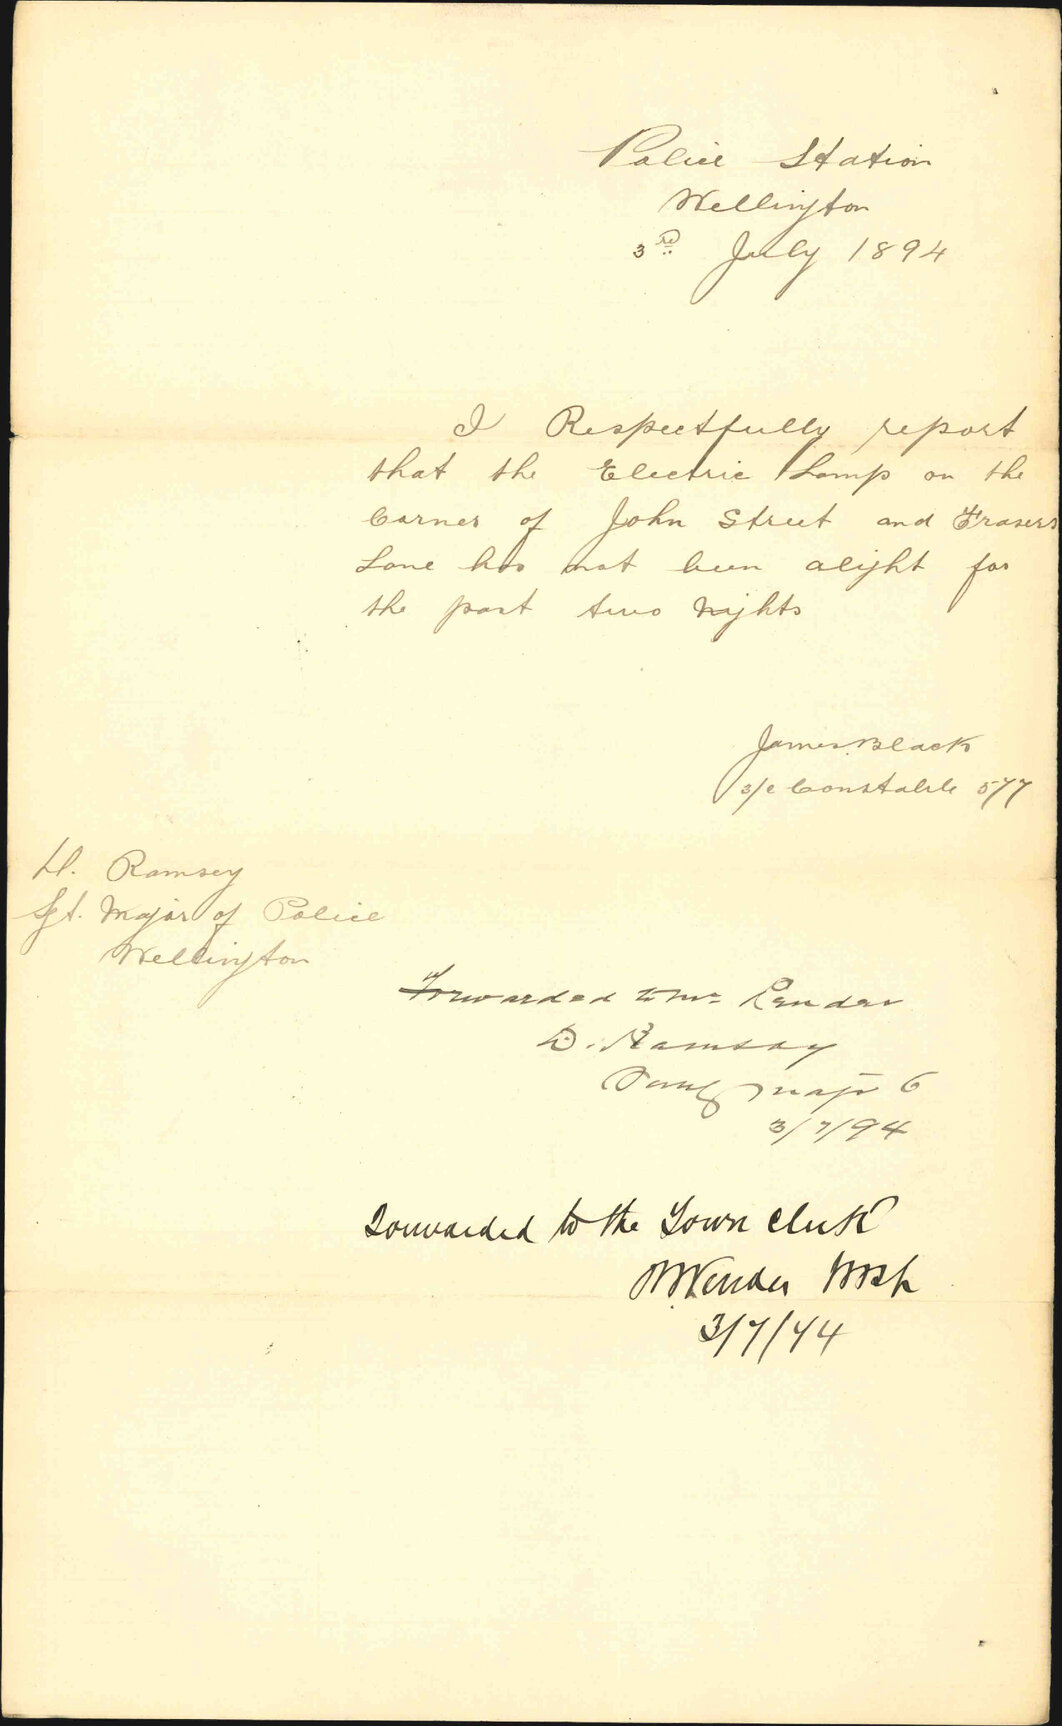 Police Station
Wellington
3rd July 1894
I Respectfully report
that the Electric Lamp on the
Corner of John Street and Frasers
Lane has not been alight for
the past two Nights
James Black
3/c Constable 577
D. Ramsey
Sgt. Major of Police
Wellington
Forwarded to Mr Render
D. Ramsay
Major 6
3/7/94
Forwarded to the Town Clerk
Render
3/7/94